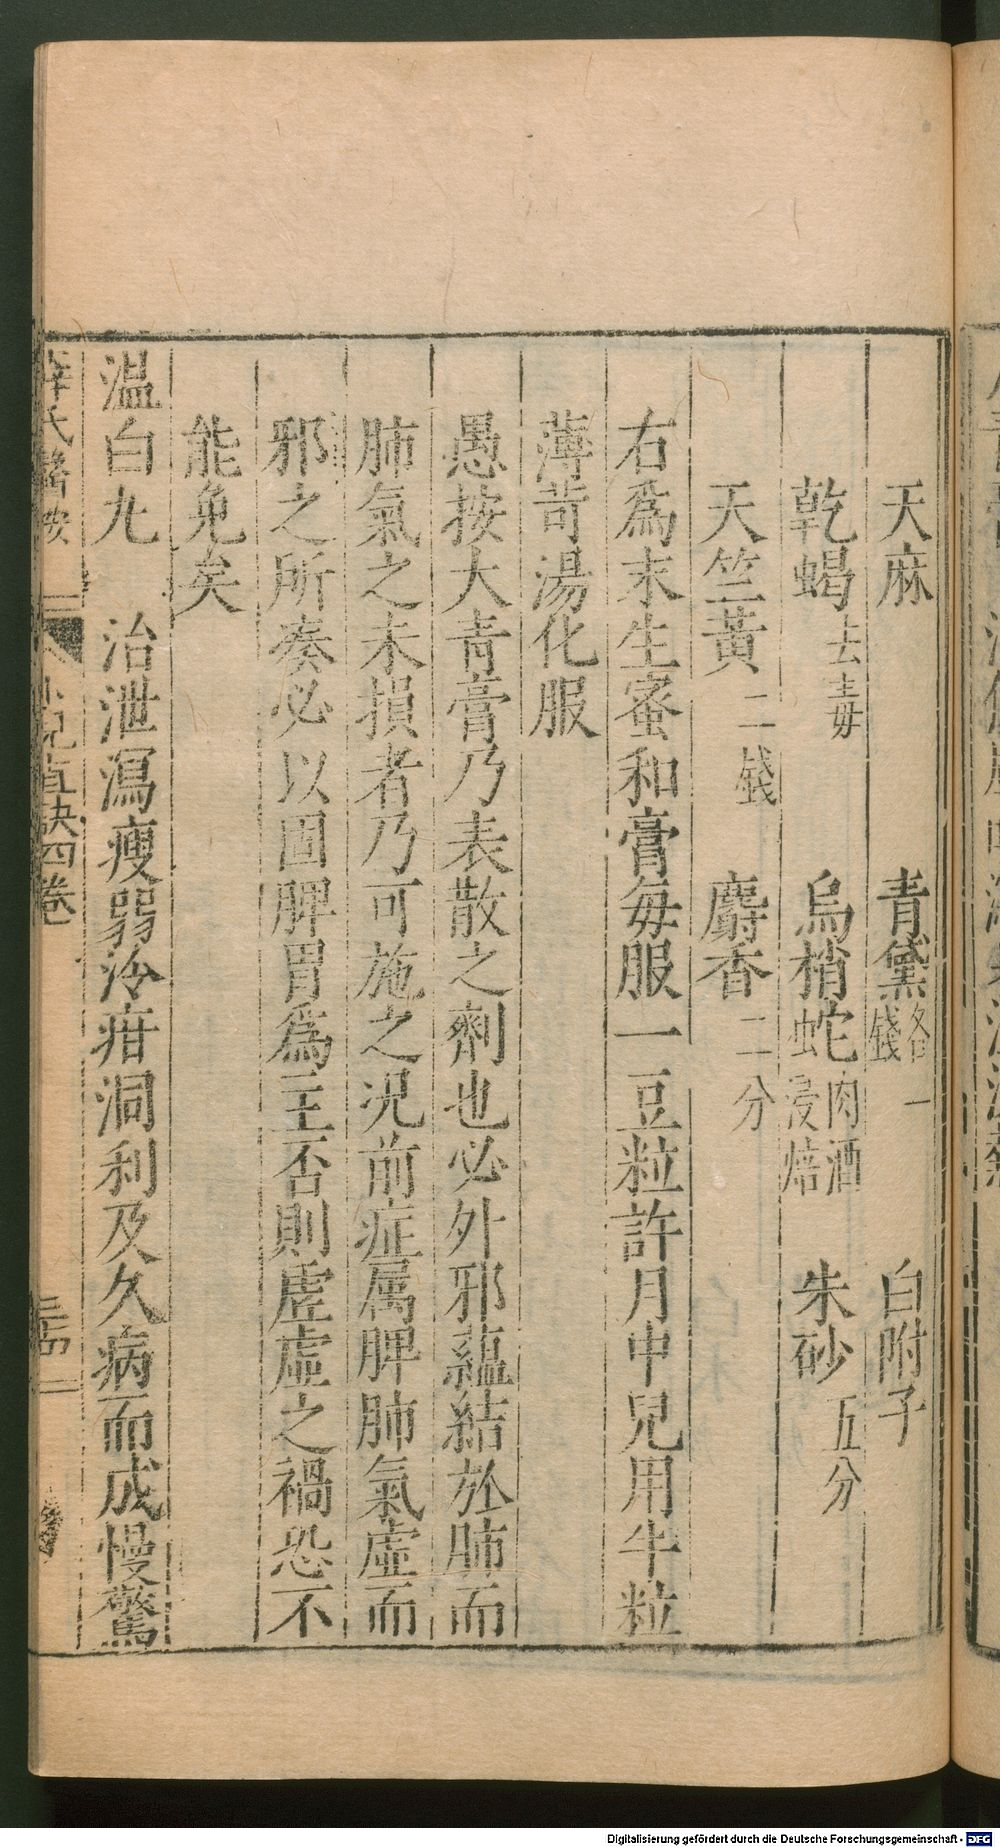 天麻 青黛各一錢 白附子
乾蝎去毒 烏梢蛇肉酒浸焙 朱砂五分
天竺黃二錢 麝香二分
右爲末生蜜和膏每服一豆粒許月中兒用半粒
薄苛湯化服
愚按大青膏乃表散之劑也必外邪蘊結於肺而
肺氣之未損者乃可施之况前症属脾肺氣虛而
邪之所奏必以固脾胃爲主否則虛虛之禍恐不
能免矣
溫白丸 治泄瀉瘦弱冷疳洞利及久病而成慢驚
薛氏醫按 小兒直訣四卷
Digitalisierung gefördert durch die Deutsche Forschungsgemeinschaft - DFG